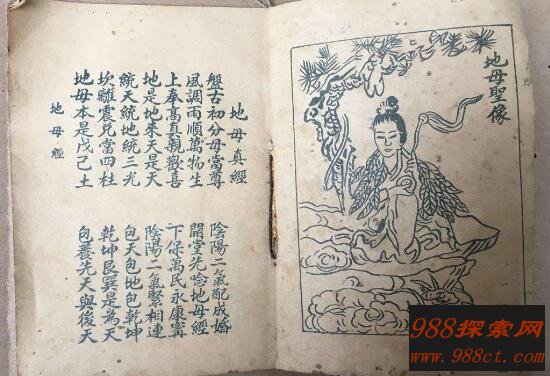 地母聖像
地母真經
盤古初分母當尊 陰陽二氣配成婚
風調雨順萬物生 開堂先唸地母經
上奉高真親歡喜 下保萬民永康寧
地是地來天是天 陰陽二氣緊相連
統天統地統三光 包天包地包乾坤
坎離震兌當四柱 乾坤艮巽是為天
地母本是戊己土 包養先天與後天
地母經
988探索网
www.988ct.com